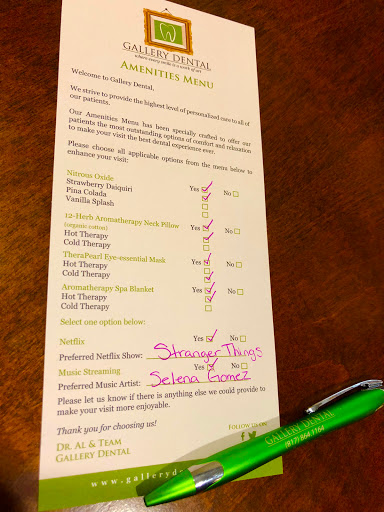 GALLERY DENTAL
where every smile is a work of art
AMENITIES MENU
Welcome to Gallery Dental,
We strive to provide the highest level of personalized care to all of
our patients.
Our Amenities Menu has been specially crafted to offer our
patients the most outstanding options of comfort and relaxation
to make your visit the best dental experience ever.
Please choose all applicable options from the menu below to
enhance your visit:
Nitrous Oxide Yes No
Strawberry Daiquiri
Pina Colada
Vanilla Splash
12-Herb Aromatherapy Neck Pillow Yes No
(organic cotton)
Hot Therapy
Cold Therapy
TheraPearl Eye-essential Mask Yes No
Hot Therapy
Cold Therapy
Aromatherapy Spa Blanket Yes No
Hot Therapy
Cold Therapy
Select one option below:
Netflix Yes No
Preferred Netflix Show: Stranger Things
Music Streaming Yes No
Preferred Music Artist: Selena Gomez
Please let us know if there is anything else we could provide to
make your visit more enjoyable.
Thank you for choosing us!
FOLLOW US ON
DR. AL & TEAM
GALLERY DENTAL
www.galleryde
GALLERY DENTAL
(817) 864 1164